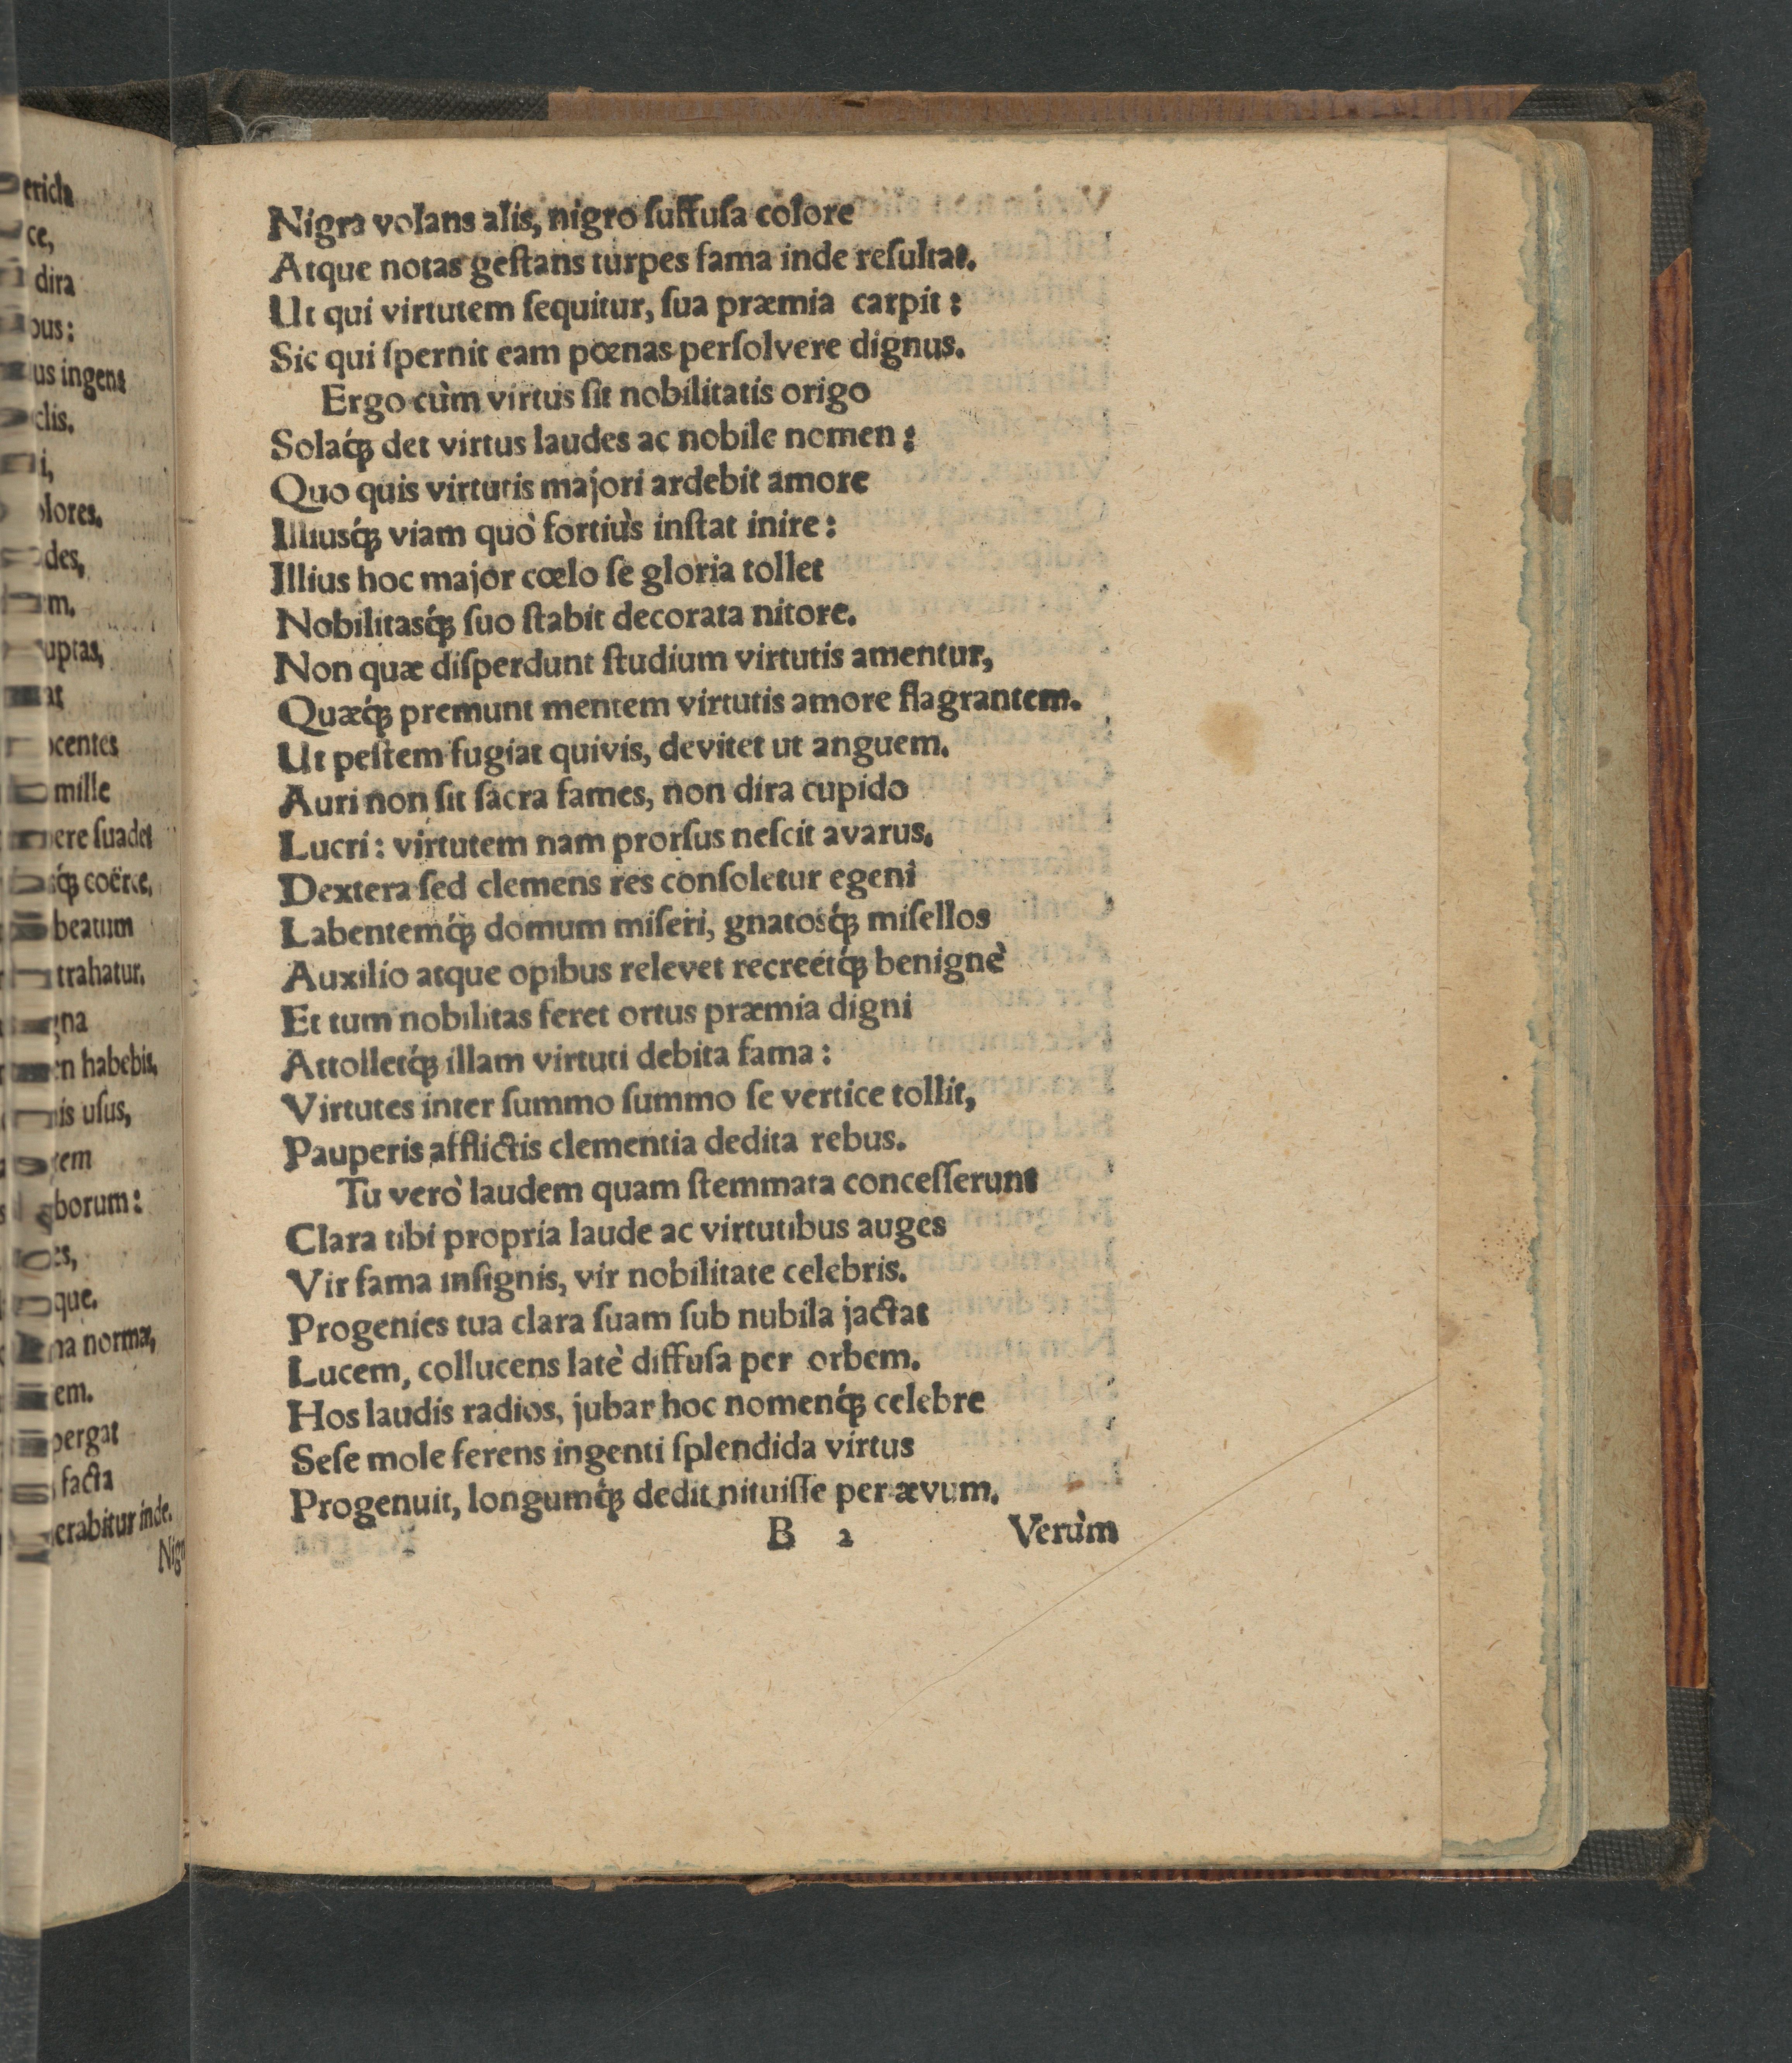 Nigra volans alis, nigro ſuffuſa colore
Atque notas geſtans turpes fama inde reſultat.
Ut qui virtutem ſequitur, ſua præmia carpit:
Sic qui ſpernit eam pœnas perſolvere dignus.
Ergo cùm virtus ſit nobilitatis origo
Solaq́ꝫ det virtus laudes ac nobile nomen:
Quo quis virtutis majori ardebit amore
Illiusq́ꝫ viam quò fortiùs inſtat inire:
Illius hoc major cœlo ſe gloria tollet
Nobilitasq́ꝫ ſuo ſtabit decorata nitore.
Non quæ diſperdunt ſtudium virtutis amentur,
Quæq́ꝫ premunt mentem virtutis amore flagrantem.
Ut peſtem fugiat quivis, devitet ut anguem.
Auri non ſit ſacra fames, non dira cupido
Lucri: virtutem nam prorſus neſcit avarus.
Dextera ſed clemens res conſoletur egeni
Labentemq́ꝫ domum miſeri, gnatosq́ꝫ miſellos
Auxilio atque opibus relevet recreétq́ꝫ benignè
Et tum nobilitas feret ortus præmia digni
Attolletq́ꝫ illam virtuti debita fama:
Virtutes inter ſummo ſummo ſe vertice tollit,
Pauperis afflictis clementia dedita rebus.
Tu verò laudem quam ſtemmata conceſſerunt
Clara tibi propria laude ac virtutibus auges
Vir fama inſignis, vir nobilitate celebris.
Progenies tua clara ſuam ſub nubila jactat
Lucem, collucens latè diffuſa per orbem.
Hos laudis radios, jubar hoc nomenq́ꝫ celebre
Seſe mole ferens ingenti ſplendida virtus
Progenuit, longumq́ꝫ dedit nituiſſe per ævum.
B 2 Verùm